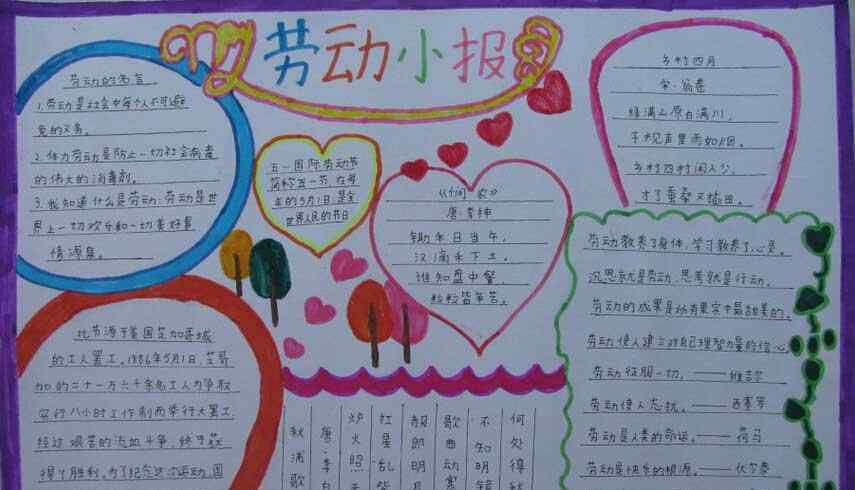 劳动小报
劳动的名言
1.劳动是社会中每个人不可避
免的义务。
2.体力劳动是防止一切社会病毒
的伟大的消毒剂。
3.我知道什么是劳动:劳动是世
界上一切欢乐和一切美好事
情源泉。
五一国际劳动节
简称五一节,在每
年的5月1日是全
世界人民的节日
《悯农》
唐·李绅
锄禾日当午,
汗滴禾下土。
谁知盘中餐,
粒粒皆辛苦。
乡村四月
宋·翁卷
绿满山原白满川,
子规声里雨如烟。
乡村四月闲人少,
才了蚕桑又插田。
此节源于美国芝加哥城
的工人罢工。1886年5月1日,芝哥
加的二十一万六千余名工人为争取
实行八小时工作制而举行大罢工,
经过艰苦的流血斗争,终于获
得了胜利。为了纪念这次运动,国
秋浦歌
唐·李白
炉火照天
红星乱紫
赧郎明月
歌曲动寒
不知明镜
何处得秋
劳动教养了身体,学习教养了心灵。
沉思就是劳动,思考就是行动。
劳动的成果是所有果实中最甜美的。
劳动使人建立对自己理智力量的信心。
劳动征服一切。——维吉尔
劳动使人忘忧。——西塞罗
劳动是人类的命运。——荷马
劳动是快乐的根源。——伏尔泰